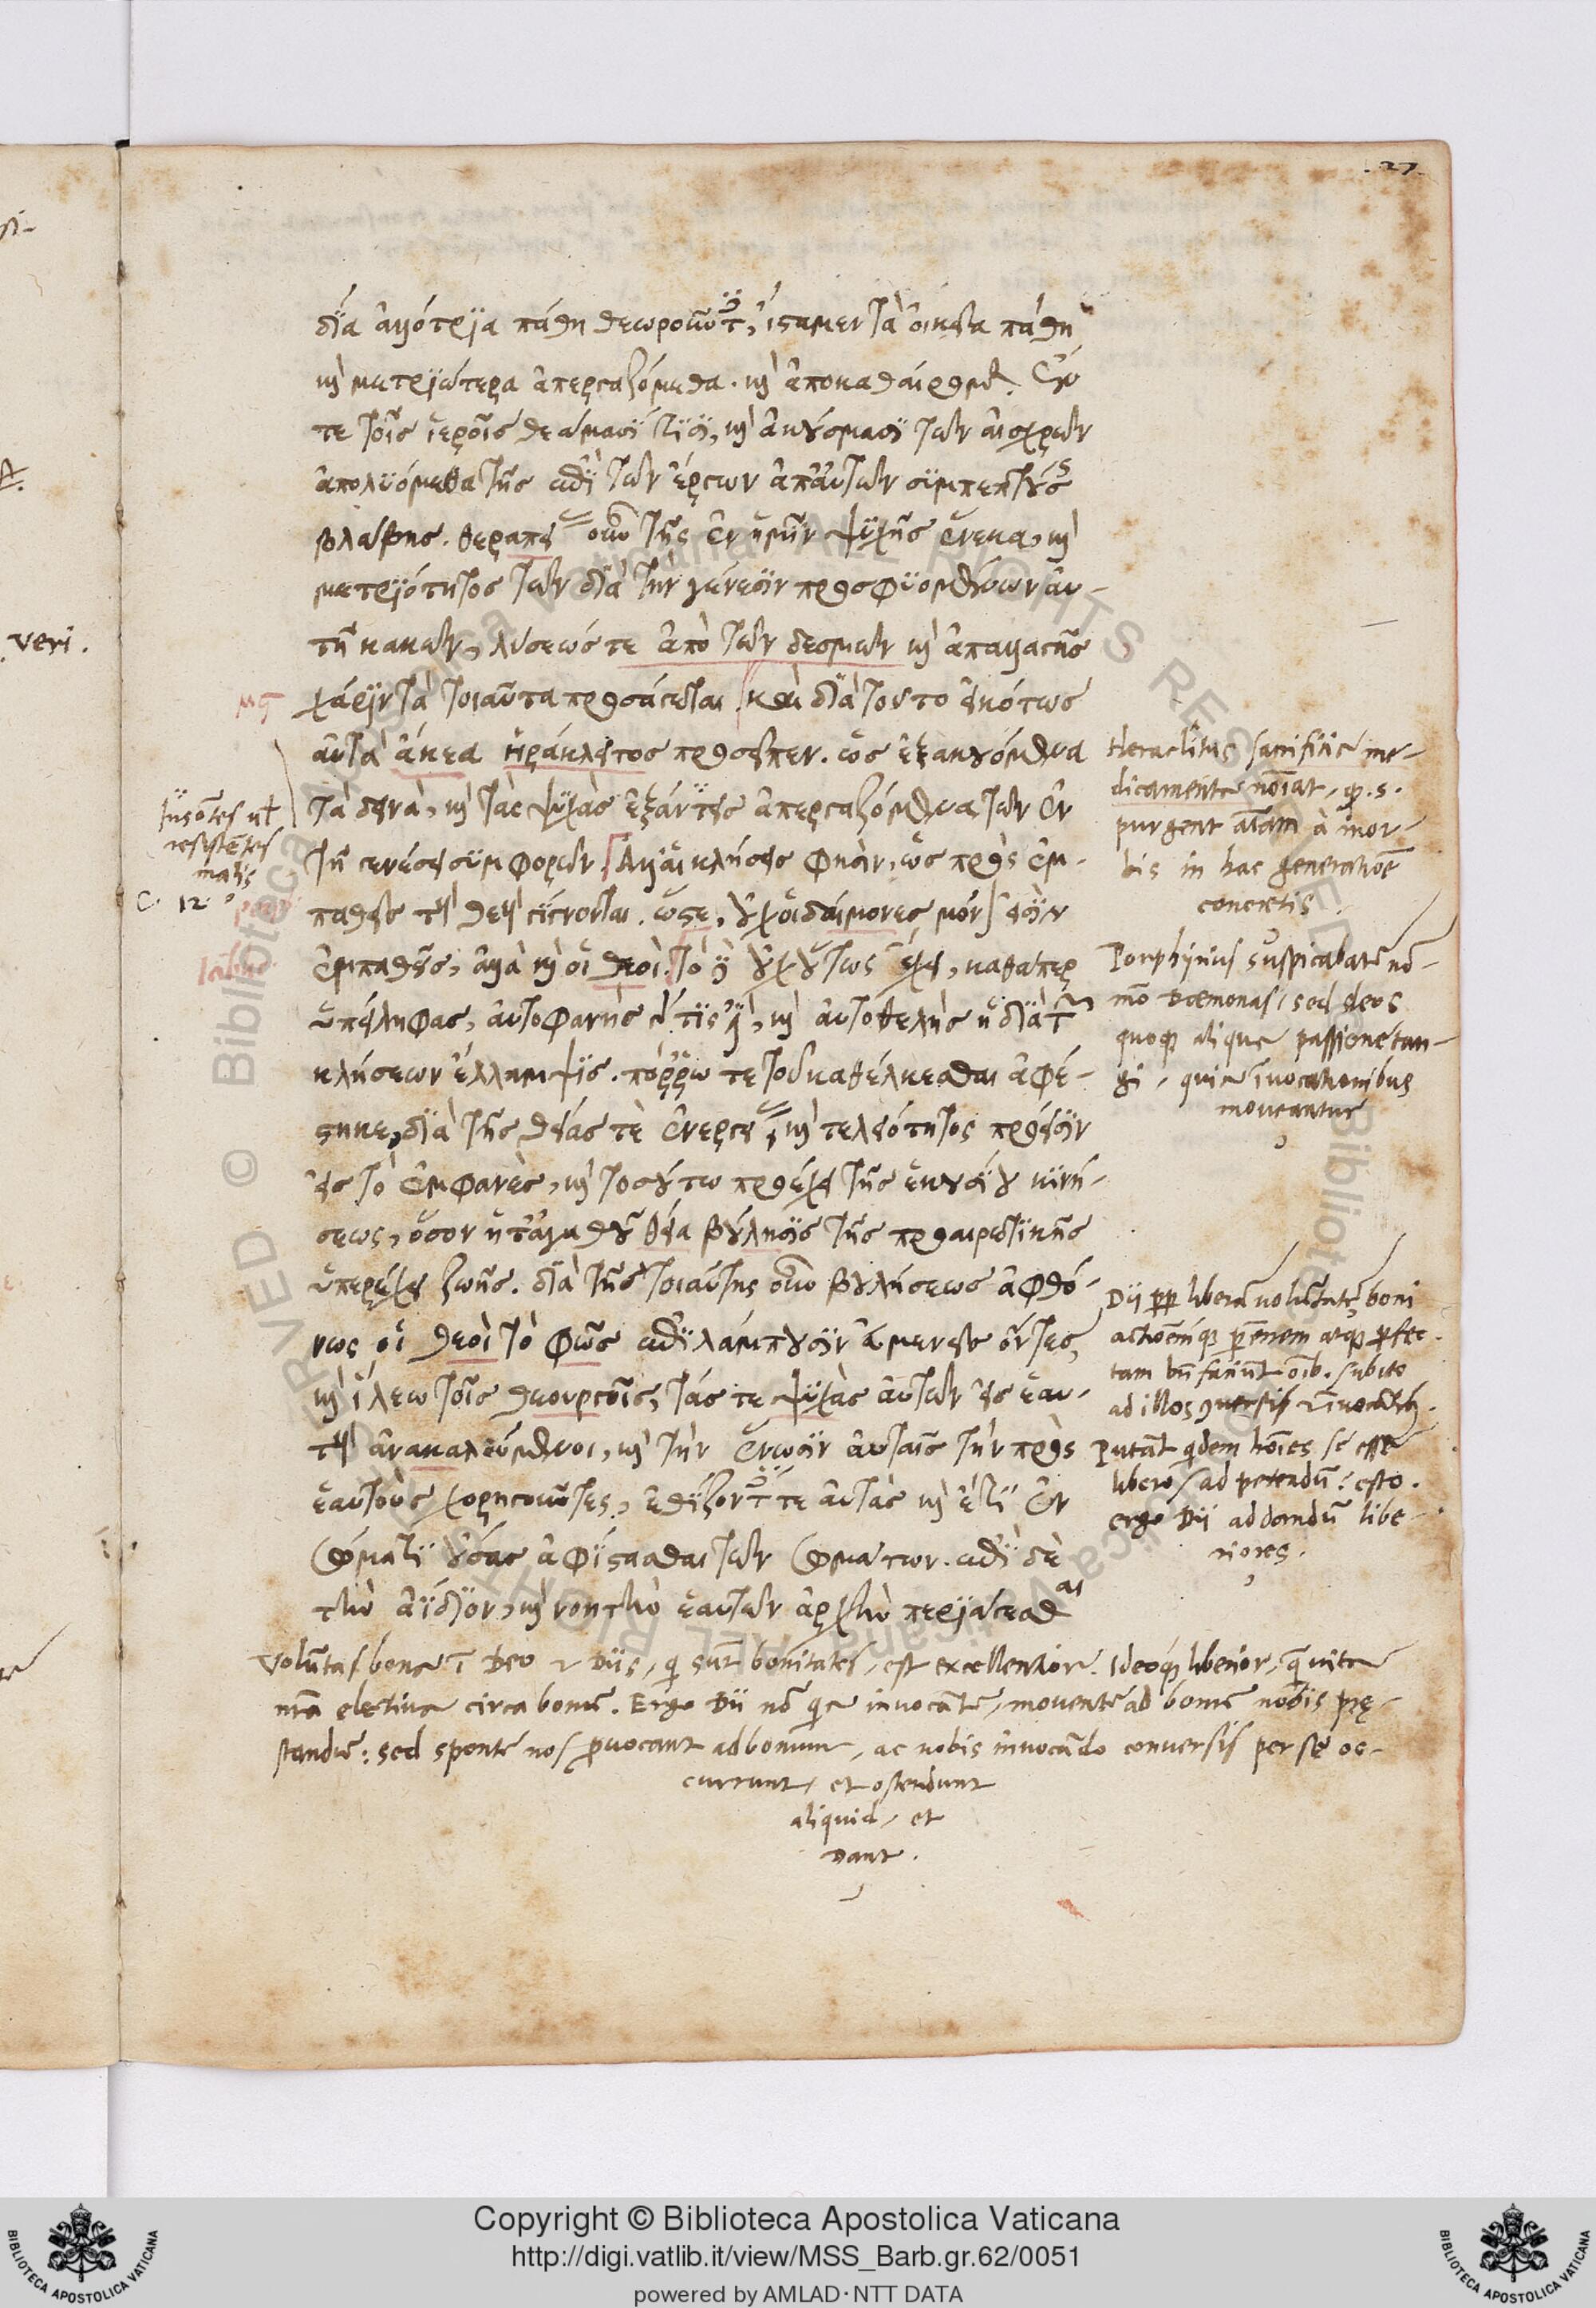 .27.
δία ἀλλότρια πάθη θεωροῦντες, ἵσταμεν τὰ οἰκεῖα πάθη
καὶ μετριώτερα ἀπεργαζόμεθα. καὶ ἀποκαθαίρομεν. ἔν
τε τοῖς ἱεροῖς θεάμασί τισι, καὶ ἀκούσμασι τῶν αἰσχρῶν
ἀπολυόμεθα τῆς ἐπὶ τῶν ἔργων ἀπ' αὐτῶν συμπιπτούσης
βλάβης. θεραπείας οὖν τῆς ἐν ἡμῖν ψυχῆς ἕνεκα, καὶ
μετριότητος τῶν διὰ τὴν γένεσιν προσφυομένων αὐ-
τῇ κακῶν, λύσεώς τε ἀπὸ τῶν δεσμῶν καὶ ἀπαλλαγῆς
χάριν τὰ τοιαῦτα προσάγεται. καὶ διὰ τοῦτο εἰκότως
αὐτὰ ἄκεα ἡράκλειτος προσεῖπεν. ὡς ἐξακούμενα
τὰ δεινὰ, καὶ τὰς ψυχὰς ἐξάντεις ἀπεργαζόμενα τῶν ἐν
τῇ γενέσει συμφορῶν. Ἀλλ' αἱ κλήσεις φησὶν, ὡς πρὸς ἐμ-
παθεῖς τοὺς θεοὺς γίγνονται. ὥστε, οὐχ οἱ δαίμονες μόνον εἰσὶν
ἐμπαθεῖς, ἀλλὰ καὶ οἱ θεοί. τὸ δὲ οὐχ οὕτως ἔχει, καθάπερ
ὑπείληφας, αὐτοφανὴς γάρ τις ἐστι, καὶ αὐτοθελὴς ἡ διὰ τῶν
κλήσεων ἔλλαμψις. πόρρω τε τοῦ καθέλκεσθαι ἀφέ-
στηκε, διὰ τῆς θείας τε ἐνεργείας καὶ τελειότητος πρόεισιν
εἰς τὸ ἐμφανὲς, καὶ τοσούτω προέχει τῆς ἑκουσίου κινή-
σεως, ὅσον ἡ τἀγαθοῦ θεία βούλησις τῆς προαιρετικῆς
ὑπερέχει ζωῆς. διὰ τῆς τοιαύτης οὖν βουλήσεως ἀφθό-
νως οἱ θεοὶ τὸ φῶς ἐπιλάμπουσιν εὐμενεῖς ὄντες,
καὶ ἵλεω τοῖς θεουργοῖς, τάς τε ψυχὰς αὐτῶν εἰς ἑαυ-
τοὺς ἀνακαλούμενοι, καὶ τὴν ἕνωσιν αὐταῖς τὴν πρὸς
ἑαυτοὺς χορηγοῦντες, ἐθίζοντές τε αὐτὰς καὶ ἔτι ἐν
σώματι οὔσας ἀφίστασθαι τῶν σωμάτων. ἐπὶ δὲ
τὴν ἀΐδιον, καὶ νοητὴν ἑαυτῶν ἀρχὴν περιάγεσθαι
resistentes
malis
C. 12
Heraclitus sacrificia me-
dicamenta nōiat, q. s.
purgent aīam à mor-
bis in hac generatione
concretis.
Porphyrius suspicabatur nō
mō Dæmonas, sed deos
quoq; aliqua passione tan-
gi, quia invocationibus
moveantur
Dii pp liberā voluntatē boni
actionēmq; perennem atq; perfec-
tam bn̄ faciunt oīb. subito
ad illos conversis & invocatib.
Putāt quidem hoīes se esse
liberos ad petendū: esto.
ergo Dii ad dandū libe-
riores.
Voluntas bona ī Deo & Diis, qui sunt bonitates, est excellentior. Ideoq; liberior, quā vita
nrā electiva circa bonū. Ergo Dii nō quia invocantur, moventur ad bonū nobis prę-
standū: sed sponte nos provocant ad bonum, ac nobis invocādo conversis per se oc-
currunt, et ostendunt
aliquid, et
Dant.
veri.
Copyright © Biblioteca Apostolica Vaticana
http://digi.vatlib.it/view/MSS_Barb.gr.62/0051
powered by AMLAD·NTT DATA